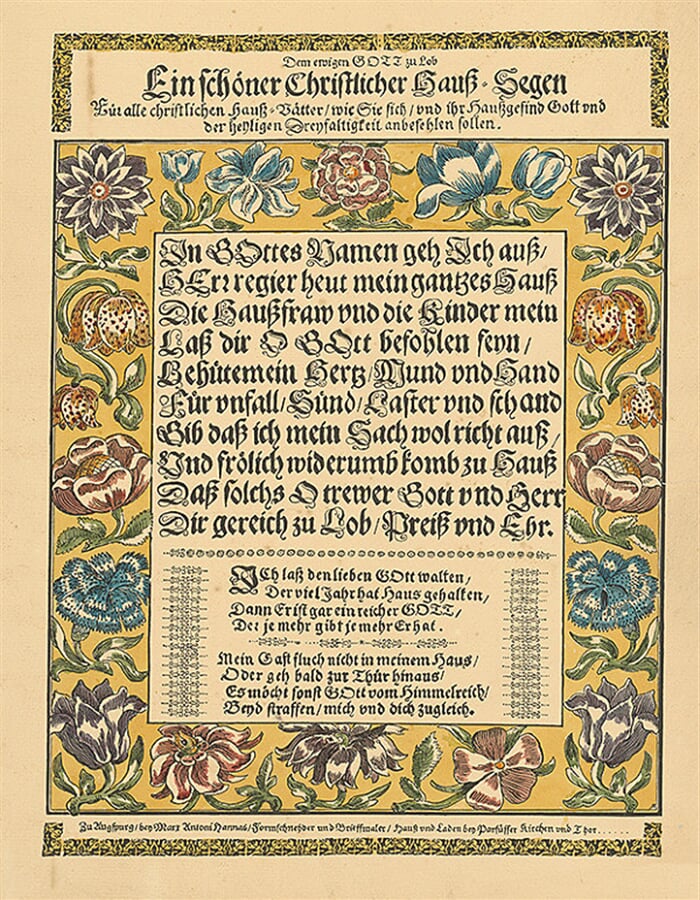 Dem ewigen GOTT zu Lob
Ein schöner Christlicher Hauß-Segen
Für alle christlichen Hauß-Vätter/wie Sie sich/vnd ihr Haußgesind Gott vnd
der heyligen Dreyfaltigkeit anbefehlen sollen.
In GOttes Namen geh Ich auß/
HErr regier heut mein gantzes Hauß
Die Haußfraw vnd die Kinder mein
Laß dir O GOtt befohlen seyn/
Behüte mein Hertz/Mund vnd Hand
Für vnfall/Sünd/Laster vnd schand
Gib daß ich mein Sach wol richt auß/
Vnd frölich widerumb komb zu Hauß
Daß solchs O trewer Gott vnd Herr
Dir gereich zu Lob/Preiß vnd Ehr.
ICh laß den lieben GOtt walten/
Der viel Jahr hat Haus gehalten/
Dann Er ist gar ein reicher GOTT/
Der je mehr gibt je mehr Er hat.
Mein Gast fluch nicht in meinem Haus/
Oder geh bald zur Thür hinaus/
Es möcht sonst GOtt vom Himmelreich/
Beyd straffen/mich vnd dich zugleich.
Zu Augspurg/bey Marx Antoni Hannas/Formschneyder und Brieffmaler/Hauß vnd Laden bey Parfüsser Kirchen vnd Thor......